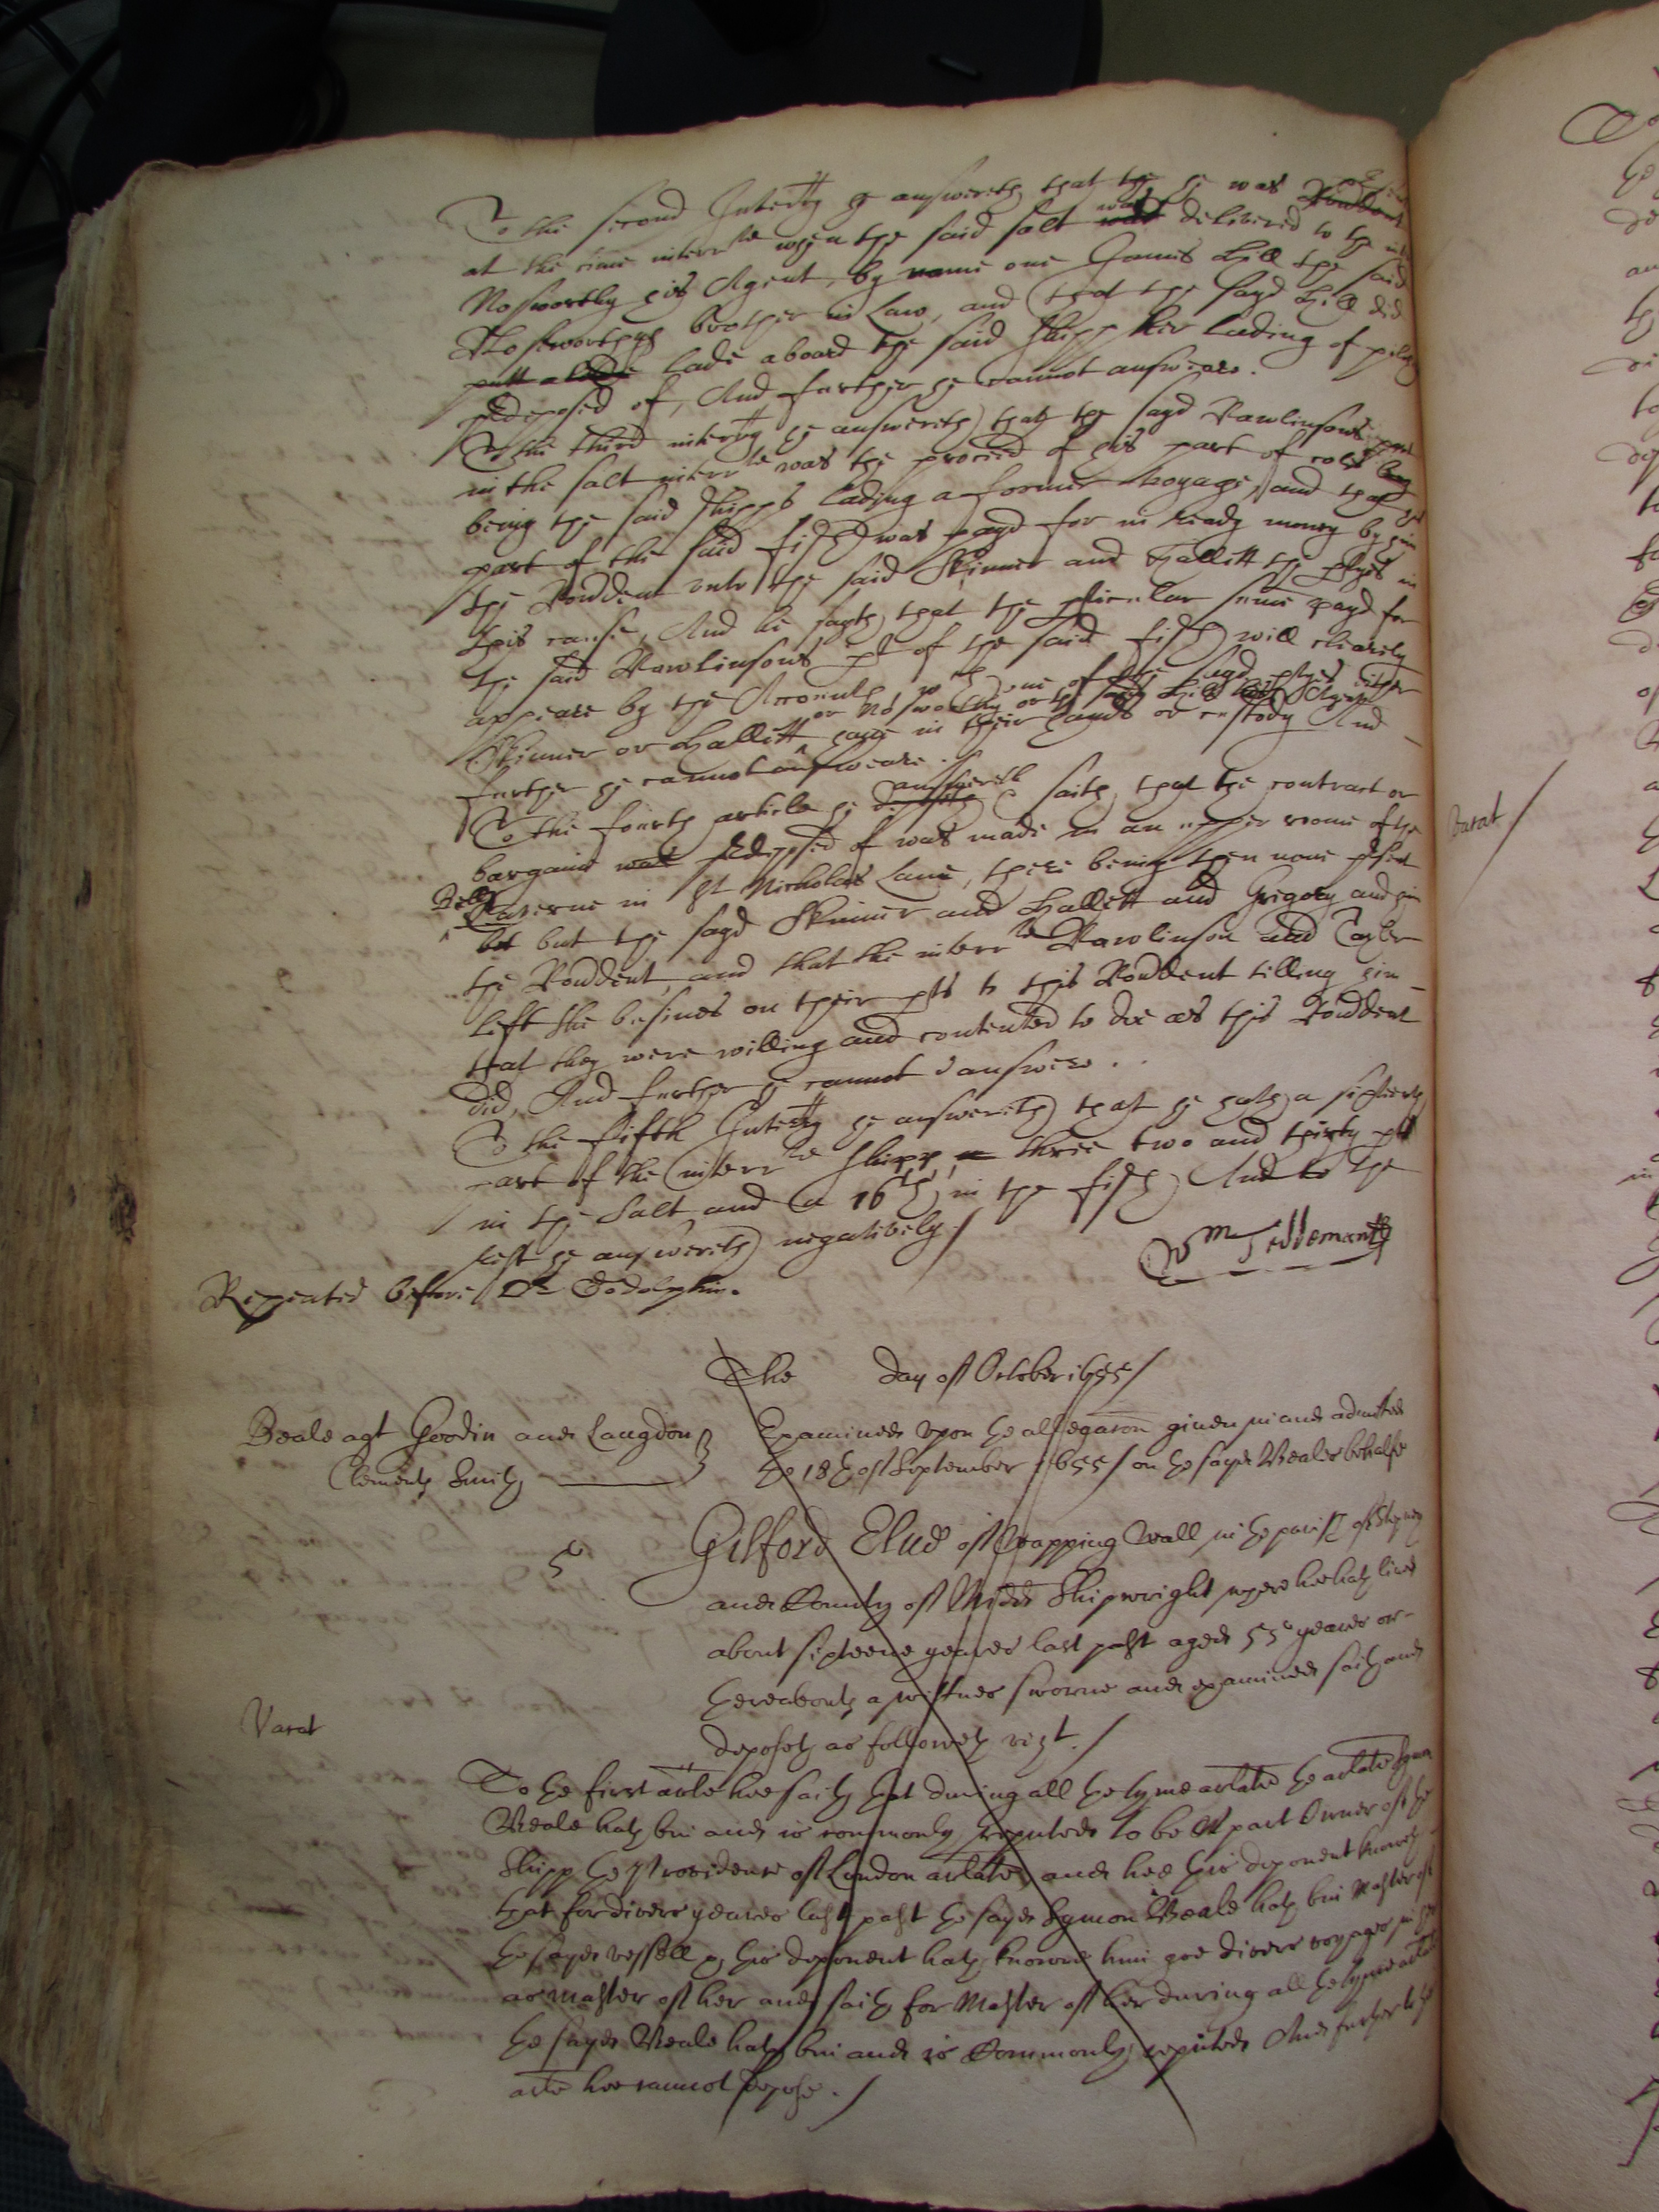 To the second Interry he answereth that the he was
at the time interrte when the said salt was delivered to the
Nosworthy his Agent, by name one James Hill the said
Nosworthys brother in Law, and that the sayd Hill did
putt lade aboard the said shipp her lading of
predeposed of, And further he cannot answeare.
To the third interry he answereth that the sayd Rawlinsons part
in the salt interrte was the proceed of his part of
being the said shipps lading a former voyage, and that
part of the said fish was payd for in ready money by him
the Rondent unto the said Skinner and Hallett the in
this cause, And he sayth that the pticular sume payd for
the said Rawlinsons pt of the said fish will clearely
appeare by the Accounts, wch one of the sayd ptyes either
or Nosworthy or the sayd Hill his Agent
Skinner or Hallett have in their hands or custody And
further he cannot answeare.
answereth
To the fourth article he deposeth saith, that the contract or
bargaine was predeposed of was made in an upper roome of the
Bell
Taverne in St Nicholas Lane, there being then none psent
but but the sayd Skinner and Hallett and Gregory and him
the Rondent, and that the interrte Rawlinson and Tayler
left the busines on their pts to this Rondent telling him
that they were willing and contented to doe as this Rondent
did, And further he cannot answere.
To the fifth Interry he answereth that he hath a sixteenth
part of the interrte shipp, three two and thirty pts
in the Salt and a 16th in the fish, And to the
rest he answereth negatively./
Wm Teddeman
Repeated before Dr Godolphin.
The day of October 1655/
Beale agt Goodin and Langdon
Clement Smith
Examined upon the allegacon given in and admitted
the 18th of September 1655/ on the sayd Beales behalfe
5
Gilford Slud of Wapping Wall in the parish of Stepney
and County of Middx Shipwright where hee hath lived
about sixteene yeares last past aged 55 yeares or
thereabouts a wittnes sworne and examined saith and
deposeth as followeth vizt./
Vacat
To the first arle hee saith that during all the tyme arlate the arlate Symon
Beale hath bin and is commonly reputed to be A part Owner of the
Shipp the Providence of London arlate, and hee this deponent knoweth
that for divers yeares last past the sayd Symon Beale hath bin Master of
the sayd vessell this deponent hath knowne him goe divers voyages in her
as Master of her and saith for Master of her during all the tyme arlate
the sayd Beale hath bin and is Commonly reputed And further to the
arle hee cannot depose./
Vacat